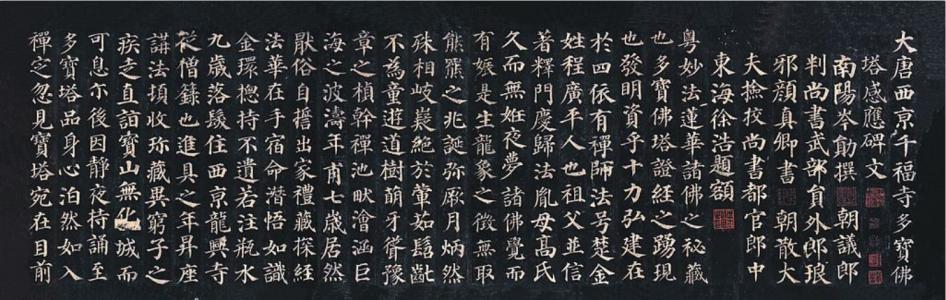 大唐西亰千福寺多寶佛
塔感應碑文
南陽岑勛撰 朝議郎
判尚書武部負外郎琅
邪顏真卿書 朝散大
夫撿挍尚書都官郎中
東海徐浩題額
粵妙法蓮華諸佛之秘藏
也多寶佛塔證經之踴現
也發明資乎十力弘建在
於四依有禪師法号楚金
姓程廣平人也祖父並信
著釋門慶歸法胤母高氏
久而無姙夜夢諸佛覺而
有娠是生龍象之徵無取
熊羆之兆誕弥厥月炳然
殊相岐嶷絕於葷茹髫齔
不為童遊道樹萌牙聳豫
章之楨幹禪池畎澮涵巨
海之波濤年甫七歲居然
猒俗自誓出家禮藏探經
法華在手宿命潛悟如識
金環揔持不遺若注瓶水
九歲落髮住西京龍興寺
從僧籙也進具之年昇座
講法頃收弥藏異窮子之
疾走直詣寶山無化城而
可息尒後因靜夜持誦至
多寶塔品身心泊然如入
禪定忽見寶塔宛在目前